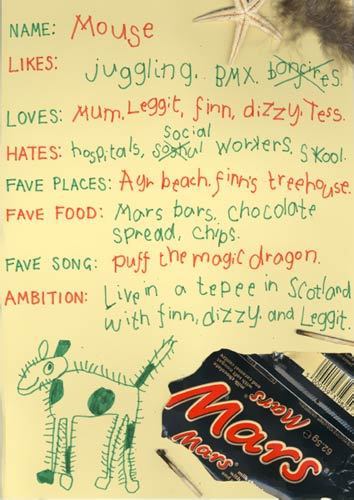 NAME: Mouse
LIKES: juggling. BMX. bonfires.
LOVES: Mum. Leggit, finn, dizzy. Tess.
social
HATES: hospitals, soshul workers. skool.
FAVE PLACES: Ayr beach. finn's treehouse.
FAVE FOOD: Mars bars. chocolate
spread, chips.
FAVE SONG: puff the magic dragon.
AMBITION: Live in a tepee in Scotland
with finn, dizzy. and Leggit.
Mars
Mars
Mars
62.5g